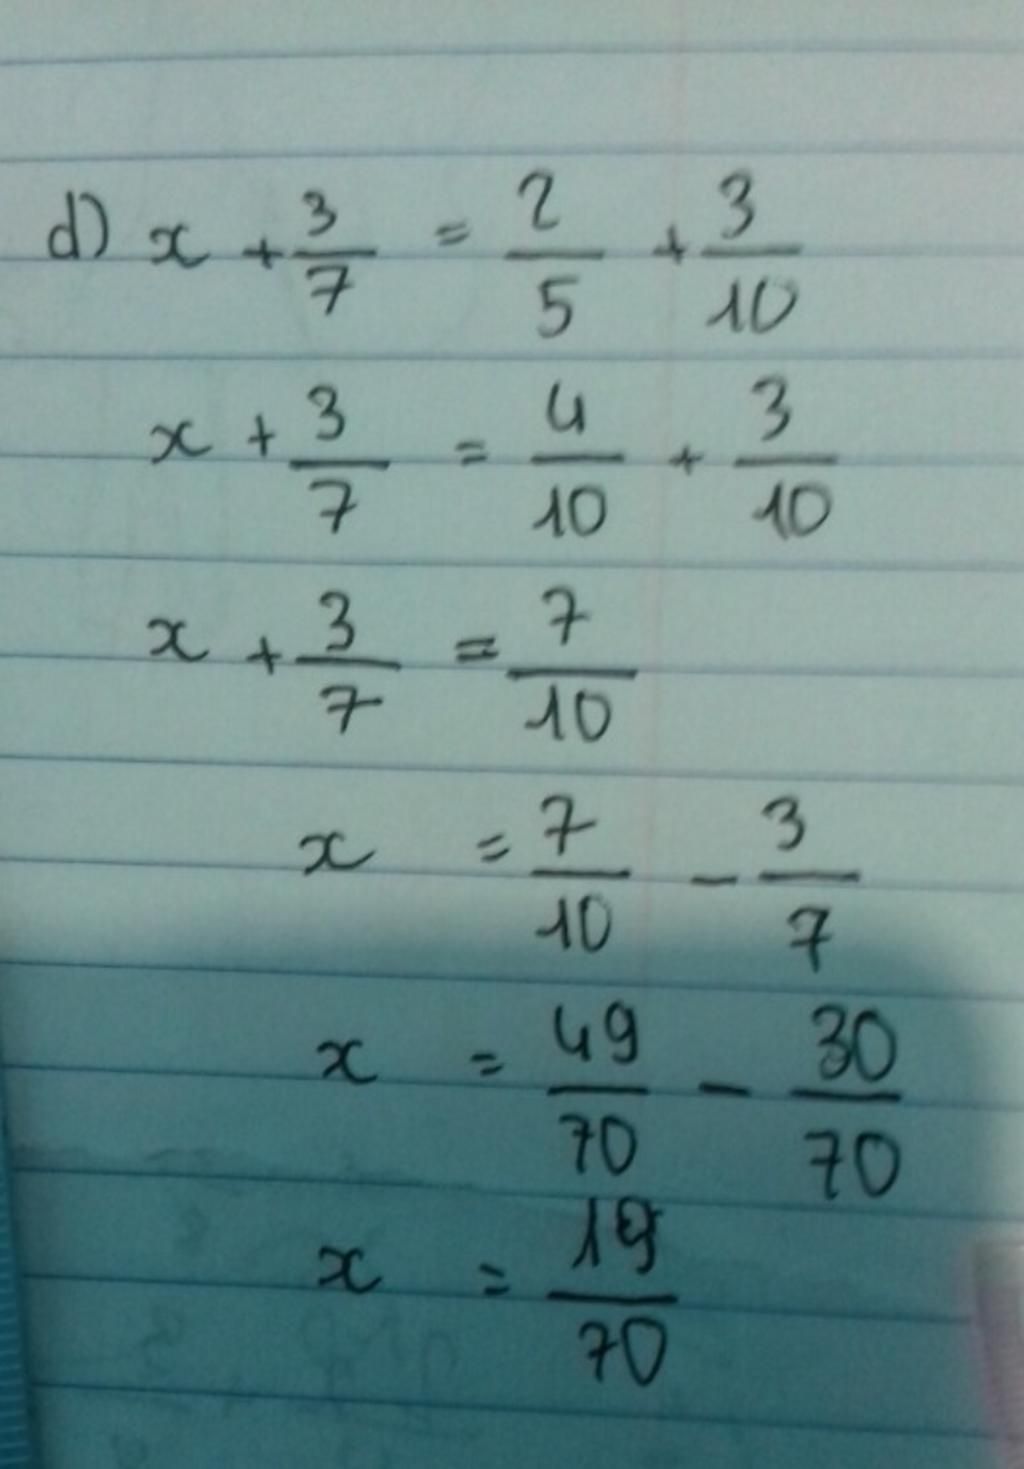 d) x + 3/7 = 2/5 + 3/10
x + 3/7 = 4/10 + 3/10
x + 3/7 = 7/10
x = 7/10 - 3/7
x = 49/70 - 30/70
x = 19/70